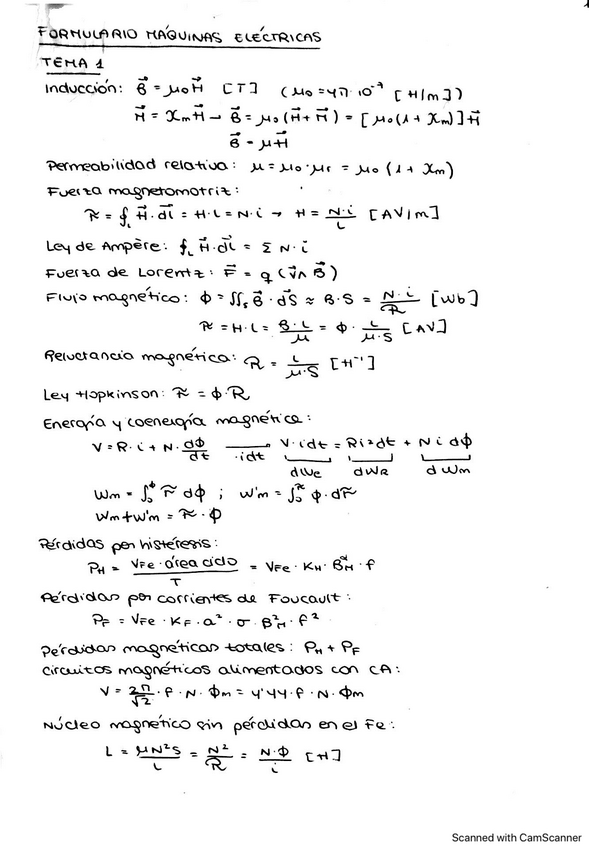 FORMULARIO MÁQUINAS ELÉCTRICAS
TEMA 1
Inducción: B⃗ = μ₀H⃗ [T] (μ₀ = 4π·10⁻⁷ [H/m])
M⃗ = χₘH⃗ → B⃗ = μ₀(H⃗ + M⃗) = [μ₀(1 + χₘ)]H⃗
B⃗ = μH⃗
Permeabilidad relativa: μ = μ₀·μr = μ₀(1 + χₘ)
Fuerza magnetomotriz:
F = ∮_L H⃗·dl⃗ = H·L = N·i → H = N·i/L [AV/m]
Ley de Ampère: ∮_L H⃗·dl⃗ = Σ N·i
Fuerza de Lorentz: F⃗ = q(v⃗∧B⃗)
Flujo magnético: ϕ = ∬_S B⃗·dS⃗ ≈ B·S = N·i/R [Wb]
F = H·L = B·L/μ = ϕ·L/(μ·S) [AV]
Reluctancia magnética: R = L/(μ·S) [H⁻¹]
Ley Hopkinson: F = ϕ·R
Energía y coenergía magnética:
V = R·i + N·dϕ/dt →(·idt) V·idt = Ri²dt + N i dϕ
dWe dWR dWm
Wm = ∫₀^ϕ F dϕ ; W'm = ∫₀^F ϕ·dF
Wm + W'm = F·ϕ
Pérdidas por histéresis:
P_H = V_Fe·área ciclo/T = V_Fe·K_H·B_M^α·f
Pérdidas por corrientes de Foucault:
P_F = V_Fe·K_F·a²·σ·B_M²·f²
Pérdidas magnéticas totales: P_H + P_F
Circuitos magnéticos alimentados con CA:
V = 2π/√2·f·N·ϕm = 4'44·f·N·ϕm
Núcleo magnético sin pérdidas en el Fe:
L = μN²S/L = N²/R = N·ϕ/i [H]
Scanned with CamScanner